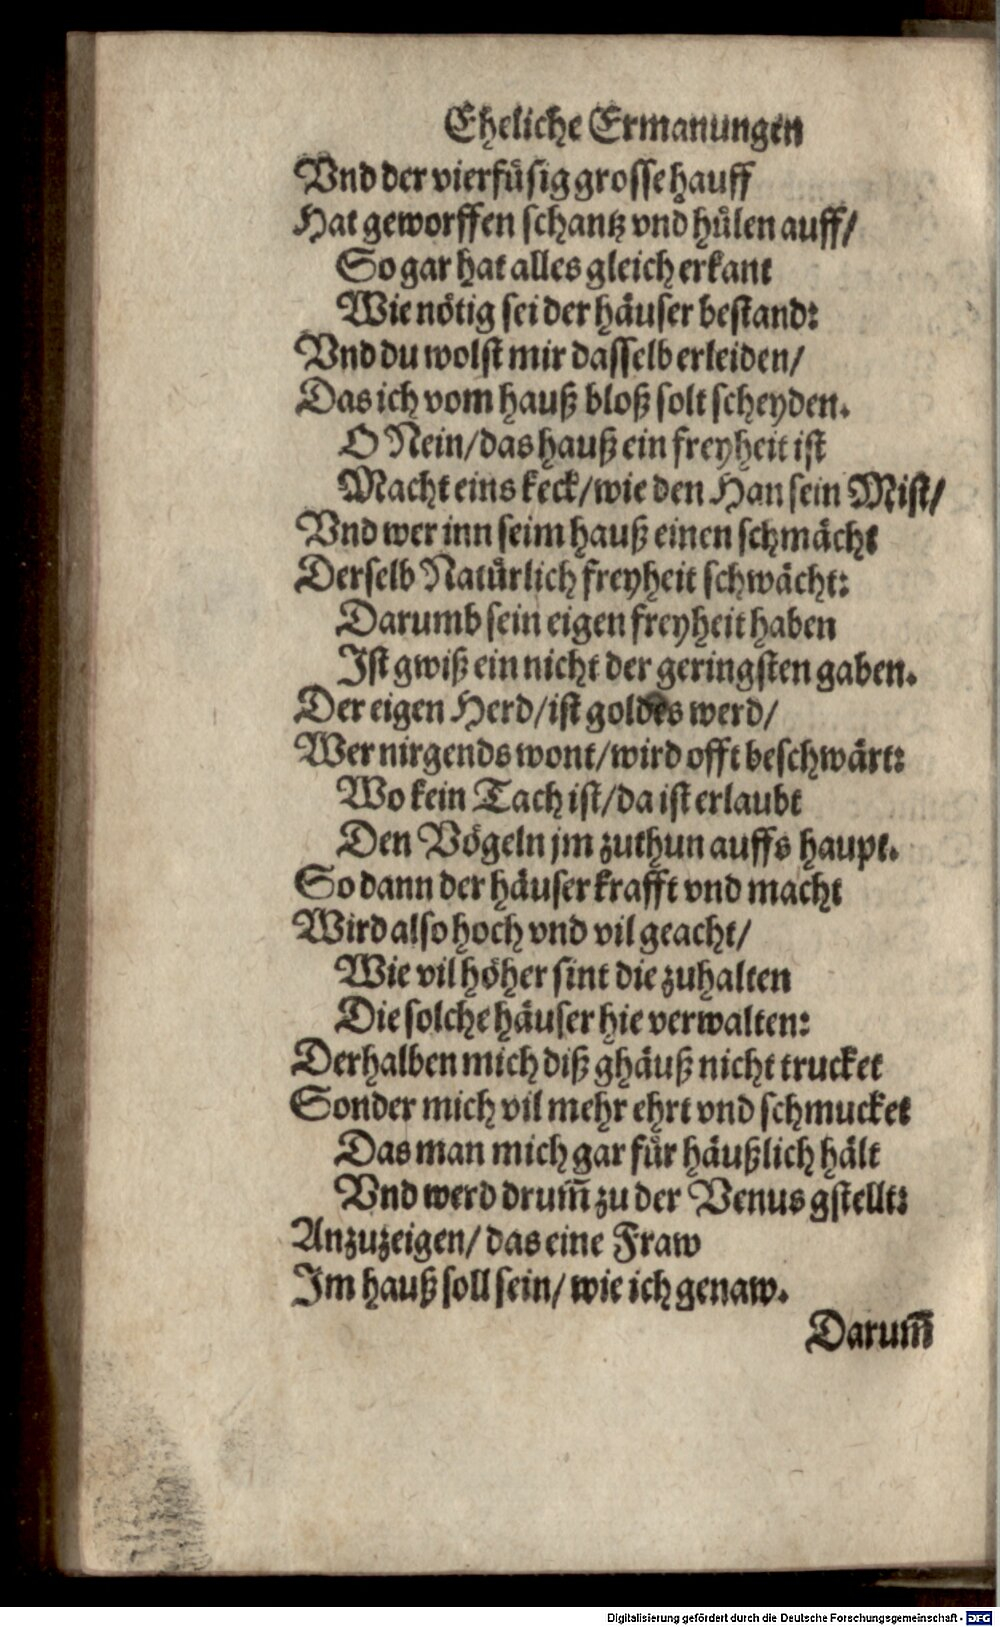 Eheliche Ermanungen
Vnd der vierfüsig grosse hauff
Hat geworffen schantz vnd hülen auff/
So gar hat alles gleich erkant
Wie nötig sei der häuser bestand:
Vnd du wolst mir dasselb erleiden/
Das ich vom hauß bloß solt scheyden.
O Nein/das hauß ein freyheit ist
Macht eins keck/wie den Han sein Mist/
Vnd wer inn seim hauß einen schmächt
Derselb Natürlich freyheit schwächt:
Darumb sein eigen freyheit haben
Ist gwiß ein nicht der geringsten gaben.
Der eigen Herd/ist goldes werd/
Wer nirgends wont/wird offt beschwärt:
Wo kein Tach ist/da ist erlaubt
Den Vögeln jm zuthun auffs haupt.
So dann der häuser krafft vnd macht
Wird also hoch vnd vil geacht/
Wie vil höher sint die zuhalten
Die solche häuser hie verwalten:
Derhalben mich diß ghäuß nicht trucket
Sonder mich vil mehr ehrt vnd schmucket
Das man mich gar für häußlich hält
Vnd werd drum̃ zu der Venus gstellt:
Anzuzeigen/ das eine Fraw
Im hauß soll sein/ wie ich genaw.
Darum̃
Digitalisierung gefördert durch die Deutsche Forschungsgemeinschaft - DFG